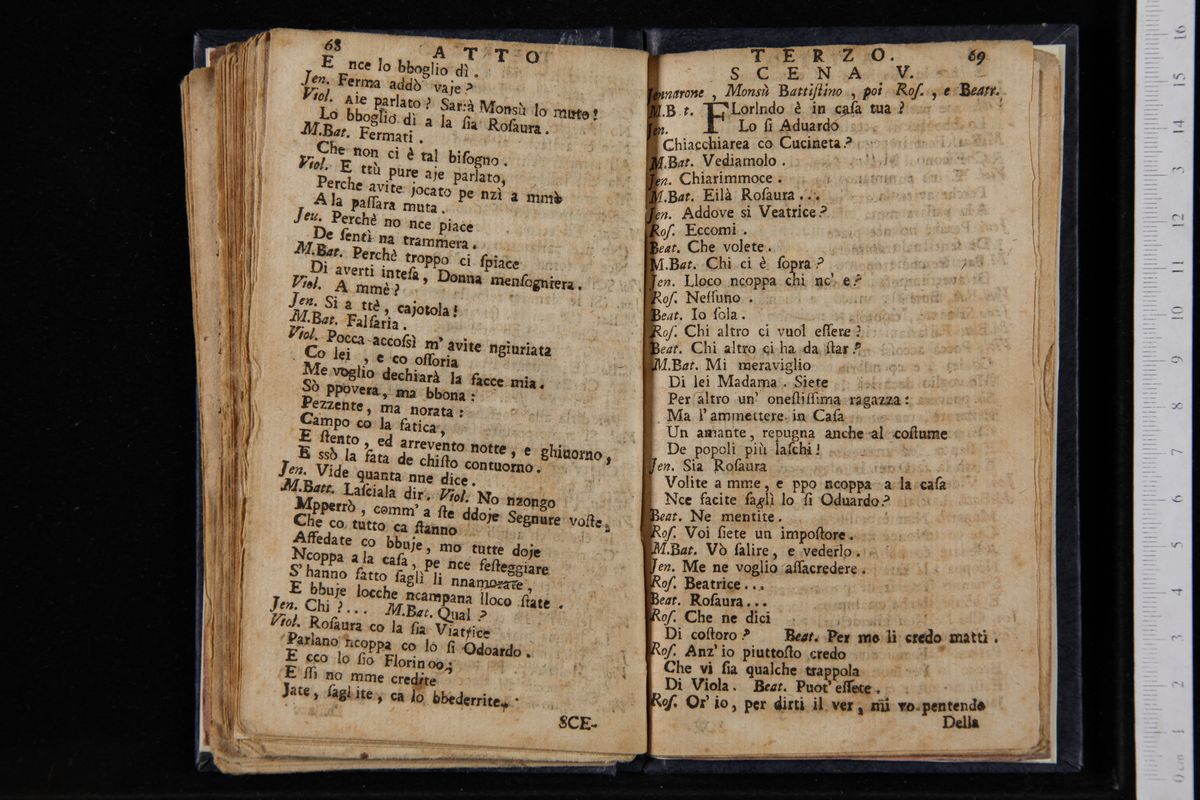 68 ATTO
E nce lo bboglio dì.
Jen. Ferma addò vaje?
Viol. Aie parlato? Sarrà Monsù lo muto!
Lo bboglio dì a la sia Rosaura.
M.Bat. Fermati.
Che non ci è tal bisogno.
Viol. E ttù pure aje parlato,
Perche avite jocato pe nzì a mmò
A la passara muta.
Jeu. Perchè no nce piace
De sentì na trammera.
M.Bat. Perchè troppo ci spiace
Di averti intesa, Donna mensogniera.
Viol. A mmè?
Jen. Si a ttè, cajotola!
M.Bat. Falsaria.
Viol. Pocca accossì m'avite ngiuriata
Co lei, e co ossoria
Me voglio dechiarà la facce mia.
Sò ppovera, ma bbona:
Pezzente, ma norata:
Campo co la fatica,
E stento, ed arrevento notte, e ghiuorno,
E ssò la fata de chisto contuorno.
Jen. Vide quanta nne dice.
M.Batt. Lasciala dir. Viol. No nzongo
Mpperrò, comm'a ste ddoje Segnure voste,
Che co tutto ca stanno
Affedate co bbuje, mo tutte doje
Ncoppa a la casa, pe nce festeggiare
S'hanno fatto saglì li nnamorate,
E bbuje locche ncampana lloco state.
Jen. Chi?... M.Bat. Qual?
Viol. Rosaura co la sia Viatrice
Parlano ncoppa co lo si Odoardo.
E cco lo sio Florinoo;
E ssi no mme credite
Jate, saglite, ca lo bbederrite.
SCE-
TERZO. 69
SCENA V.
Jennarone, Monsù Battistino, poi Ros., e Beatr.
M.B t. FLorIndo è in casa tua?
Jen. Lo si Aduardo
Chiacchiarea co Cucineta?
M.Bat. Vediamolo.
Jen. Chiarimmoce.
M.Bat. Eilà Rosaura...
Jen. Addove si Veatrice?
Ros. Eccomi.
Beat. Che volete.
M.Bat. Chi ci è sopra?
Jen. Lloco ncoppa chi nc' e?
Ros. Nessuno.
Beat. Io sola.
Ros. Chi altro ci vuol essere?
Beat. Chi altro ci ha da star?
M.Bat. Mi meraviglio
Di lei Madama. Siete
Per altro un' onestissima ragazza:
Ma l'ammettere in Casa
Un amante, repugna anche al costume
De popoli più laschi!
Jen. Sia Rosaura
Volite a mme, e ppo ncoppa a la casa
Nce facite saglì lo si Oduardo?
Beat. Ne mentite.
Ros. Voi siete un impostore.
M.Bat. Vò salire, e vederlo.
Jen. Me ne voglio assacredere.
Ros. Beatrice...
Beat. Rosaura...
Ros. Che ne dici
Di costoro? Beat. Per me li credo matti.
Ros. Anz'io piuttosto credo
Che vi sia qualche trappola
Di Viola. Beat. Puot'essere.
Ros. Or'io, per dirti il ver, mi vo pentendo
Della